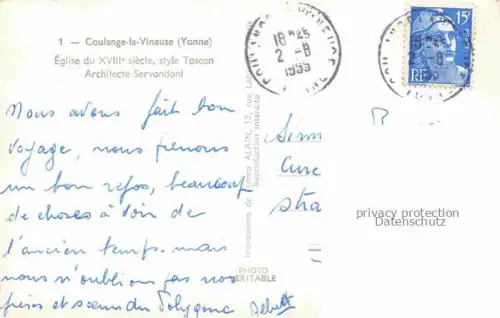 1 — Coulange-la-Vineuse (Yonne)
Église du XVIIIe siècle, style Toscan
Architecte Servandoni
Nous avons fait bon
voyage, nous prenons
un bon repos, beaucoup
de choses à voir de
l'ancien temps. mais
nous n'oublions pas nos
frères et sœurs du Polygone
18 H 25
2 - 8
1955
15F
RF
PHOTO
VÉRITABLE
Reproduction interdite
privacy protection
Datenschutz